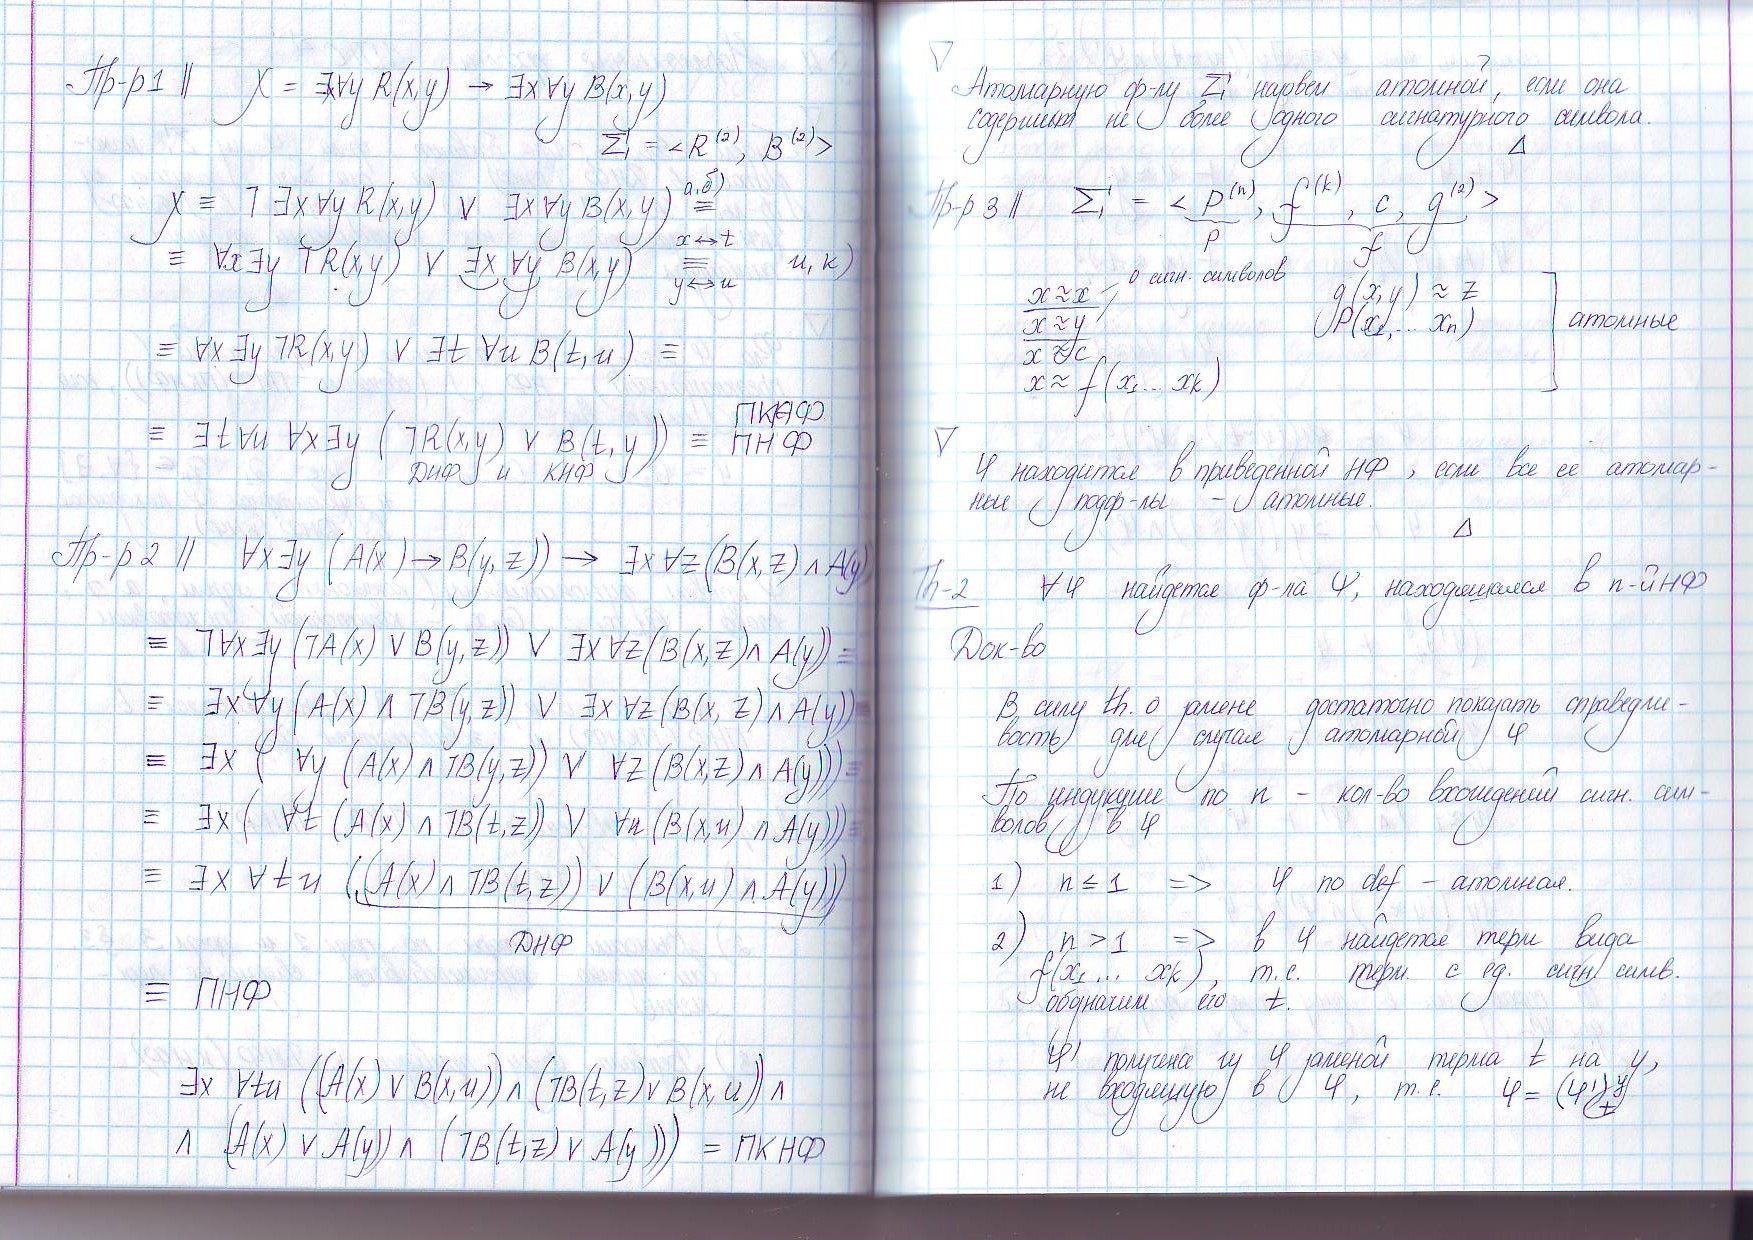 Пр-р 1 || X = ∃x∀y R(x,y) → ∃x∀y B(x,y)
Σ = <R⁽²⁾, B⁽²⁾>
X ≡ ⅂∃x∀y R(x,y) ∨ ∃x∀y B(x,y) ≡ а,б)
≡ ∀x∃y ⅂R(x,y) ∨ ∃x ∀y B(x,y) ≡ x↔t y↔u и, к)
≡ ∀x∃y ⅂R(x,y) ∨ ∃t ∀u B(t,u) ≡
≡ ∃t∀u ∀x∃y (⅂R(x,y) ∨ B(t,y)) ≡ ПНФ
ПКНФ
ДНФ и КНФ
Пр-р 2 || ∀x∃y (A(x) → B(y,z)) → ∃x∀z(B(x,z) ∧ A(y)
≡ ⅂∀x∃y (⅂A(x) ∨ B(y,z)) ∨ ∃x∀z(B(x,z) ∧ A(y)) ≡
≡ ∃x∀y (A(x) ∧ ⅂B(y,z)) ∨ ∃x∀z(B(x,z) ∧ A(y)) ≡
≡ ∃x ( ∀y (A(x) ∧ ⅂B(y,z)) ∨ ∀z(B(x,z) ∧ A(y))) ≡
≡ ∃x ( ∀t (A(x) ∧ ⅂B(t,z)) ∨ ∀u(B(x,u) ∧ A(y))) ≡
≡ ∃x ∀t u ((A(x) ∧ ⅂B(t,z)) ∨ (B(x,u) ∧ A(y)))
ДНФ
≡ ПНФ
∃x ∀tu ((A(x) ∨ B(x,u)) ∧ (⅂B(t,z) ∨ B(x,u)) ∧
∧ (A(x) ∨ A(y)) ∧ (⅂B(t,z) ∨ A(y))) = ПКНФ
▽
Атомарную ф-лу Σ назвем атомной, если она
содержит не более одного сигнатурного символа.
△
Пр-р 3 || Σ = <P⁽ⁿ⁾, f⁽ᵏ⁾, c, g⁽²⁾>
P f
x≈x 0 сигн. символов g(x,y) ≈ z
x≈y P(x₁,... xₙ) атомные
x≈c
x≈f(x₁... xₖ)
▽
φ находится в приведенной НФ, если все ее атомар-
ные подф-лы - атомные.
△
Th-2 ∀φ найдется ф-ла ψ, находящаяся в п-й НФ
Док-во
В силу th. о замене достаточно показать справедли-
вость для случая атомарной φ
По индукции по n - кол-во вхождений сигн. сим-
волов в φ
1) n ≤ 1 => φ по def - атомная.
2) n > 1 => в φ найдется терм вида
f(x₁... xₖ), т.е. терм с ед. сигн симв.
обозначим его t.
φ' получена из φ заменой терма t на y,
не входящую в φ, т.е. φ = (φ')ʸₜ